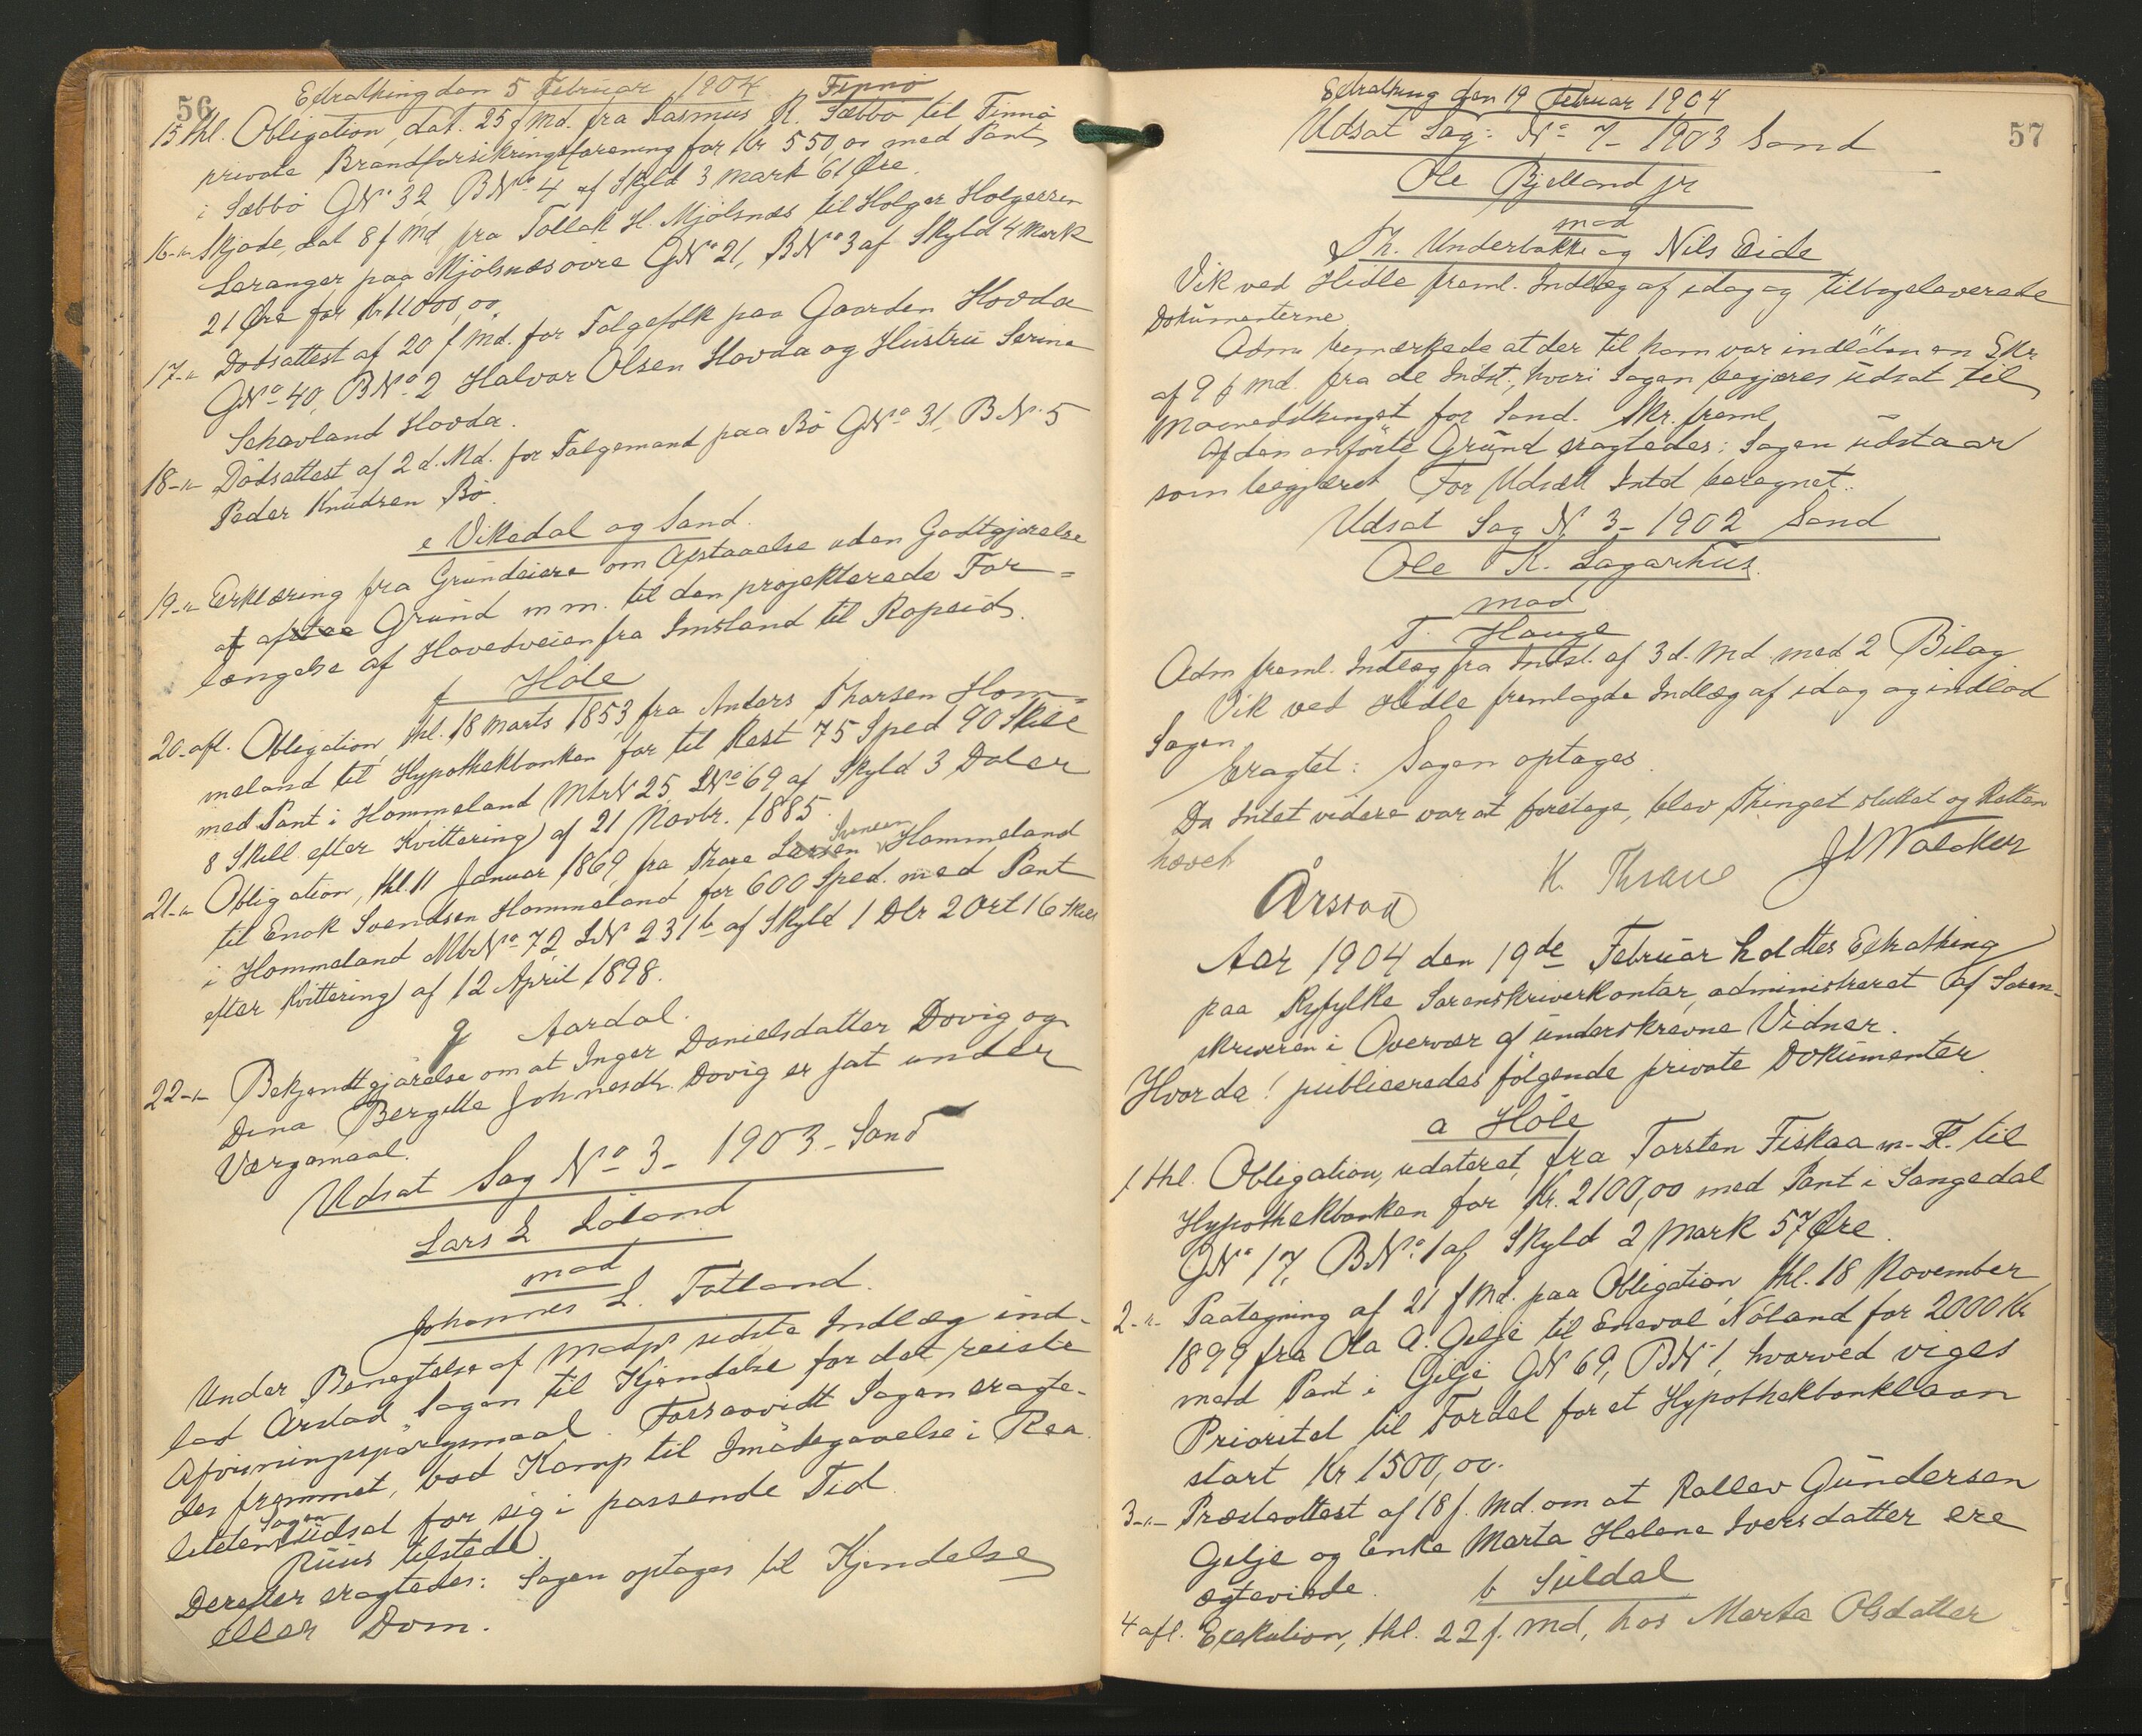 56
Extrathing den 5 Februar 1904 Finnö
15 thl. Obligation, dat. 25 f Md. fra Rasmus R. Sæbbö til Finnö
private Brandforsikringsforening for Kr 550,00 med Pant
i Sæbbö GNo 32, BNo 4 af Skyld 3 mark 61 Øre.
16 -"- Skjöde, dat 8 f Md fra Tollak H. Mjölsnæs til Holger Holgersen
Leranger paa Mjölsnæs övre GNo 21, BNo 3 af Skyld 4 Mark
21 Øre for Kr 11000,00.
17 -"- Dödsattest af 20 f Md. for Folgefolk paa Gaarden Hovda
GNo 40, BNo 2 Halvor Olsen Hovda og Hustru Serine
Sehavland Hovda.
18 -"- Dödsattest af 2 d. Md. for Folgemand paa Bö GNo 31, BN. 5
Peder Knudsen Bö.
e Vikedal og Sand.
19 -"- Erklæring fra Grundeiere om Afstaaelse uden Godtgjörelse
af afstaa Grund m m. til den projekterede For=
længelse af Hovedveien fra Imsland til Ropeid.
f Höle
20. afl. Obligation, thl. 18 Marts 1853, fra Anders Thorsen Hom=
meland til Hypothekbanken for til Rest 75 Sped 90 Skill
med Pant i Hommeland MtrN 25, LNo 69 af Skyld 3 Daler
8 Skill efter Kvittering af 21 Novbr. 1885.
21 -"- Obligation, thl. 11 Januar 1869, fra Thore Larsen Svensen Hommeland
til Enok Svendsen Hommeland for 600 Sped. med Pant
i Hommeland MtrNo 72, LN 231b af Skyld 1 Dlr 2 Ort 16 Skill
efter Kvittering af 12 April 1898.
g Aardal.
22 -"- Bekjendtgjörelse om at Inger Danielsdatter Dovig og
Dina Bergitte Johnesdtr. Dovig er sat under
Værgemaal.
Udsat Sag No 3 - 1903 - Sand
Lars L Löland
mod
Johannes L. Totland.
Under Benegtelse af Modp. sidste Indlæg ind-
lod Årstad Sagen til Kjendelse for det reiste
Afvisningsspörgsmaal. Forsaavidt Sagen eragte-
des fremmet, bad Kamp til Imödegaaelse i Rea-
liteten Sagen udsat for sig i passende Tid.
Ruus tilstede
Derefter eragtedes: Sagen optages til Kjendelse
eller Dom.
57
Extrathing den 19 Februar 1904
Udsat Sag: No 7 - 1903 Sand
Ole Bjelland jr
mod
Th. Underbakke og Nils Eide
Vik ved Hidle freml. Indlæg af idag og tilbageleverede
Dokumenterne
Adm bemærkede at der til ham var indlöben en Skr.
af 9 f Md. fra de Indst., hvori Sagen begjæres udsat til
Maanedsthinget for Sand. Skr. freml
Af den anförte Grund eragtedes: Sagen udstaar
som begjæret For Udsæt Intd beregnet.
Udsat Sag N 3 - 1902 Sand
Ole K. Lagarhus
mod
T. Hauge
Adm freml. Indlæg fra Indst. af 3 d. Md. med 2 Bilag
Vik ved Hidle fremlagde Indlæg af idag og indlod
Sagen
Eragtet: Sagen optages.
Da Intet videre var at foretage, blev Thinget sluttet og Retten
hævet
Årstad K. Thrane J Walcker
Aar 1904 den 19de Februar holdtes Extrathing
paa Ryfylke Sorenskriverkontor, administreret af Soren-
skriveren i Overvær af underskrevne Vidner.
Hvor da! publiceredes følgende private Dokumenter.
a Höle
1 thl. Obligation, udateret, fra Torsten Fiskaa m. Fl. til
Hypothekbanken for Kr. 2100,00 med Pant i Sangedal
GNo 17, BNo 1 af Skyld 2 Mark 57 Øre.
2 -"- Paategning af 21 f Md. paa Obligation, thl. 18 November
1899 fra Ola A. Gilje til Eneval Nöland for 2000 Kr
med Pant i Gilje GN 69, BN 1, hvorved viges
Prioritet til Fordel for et Hypothekbanklaan
stort Kr 1500,00.
3 -"- Præsteattest af 18 f. Md. om at Rallev Gundersen
Gilje og Enke Marta Helene Iversdatter ere
ægteviede.
b Suldal
4 afl. Exekution, thl. 22 f. Md, hos Marta Olsdatter